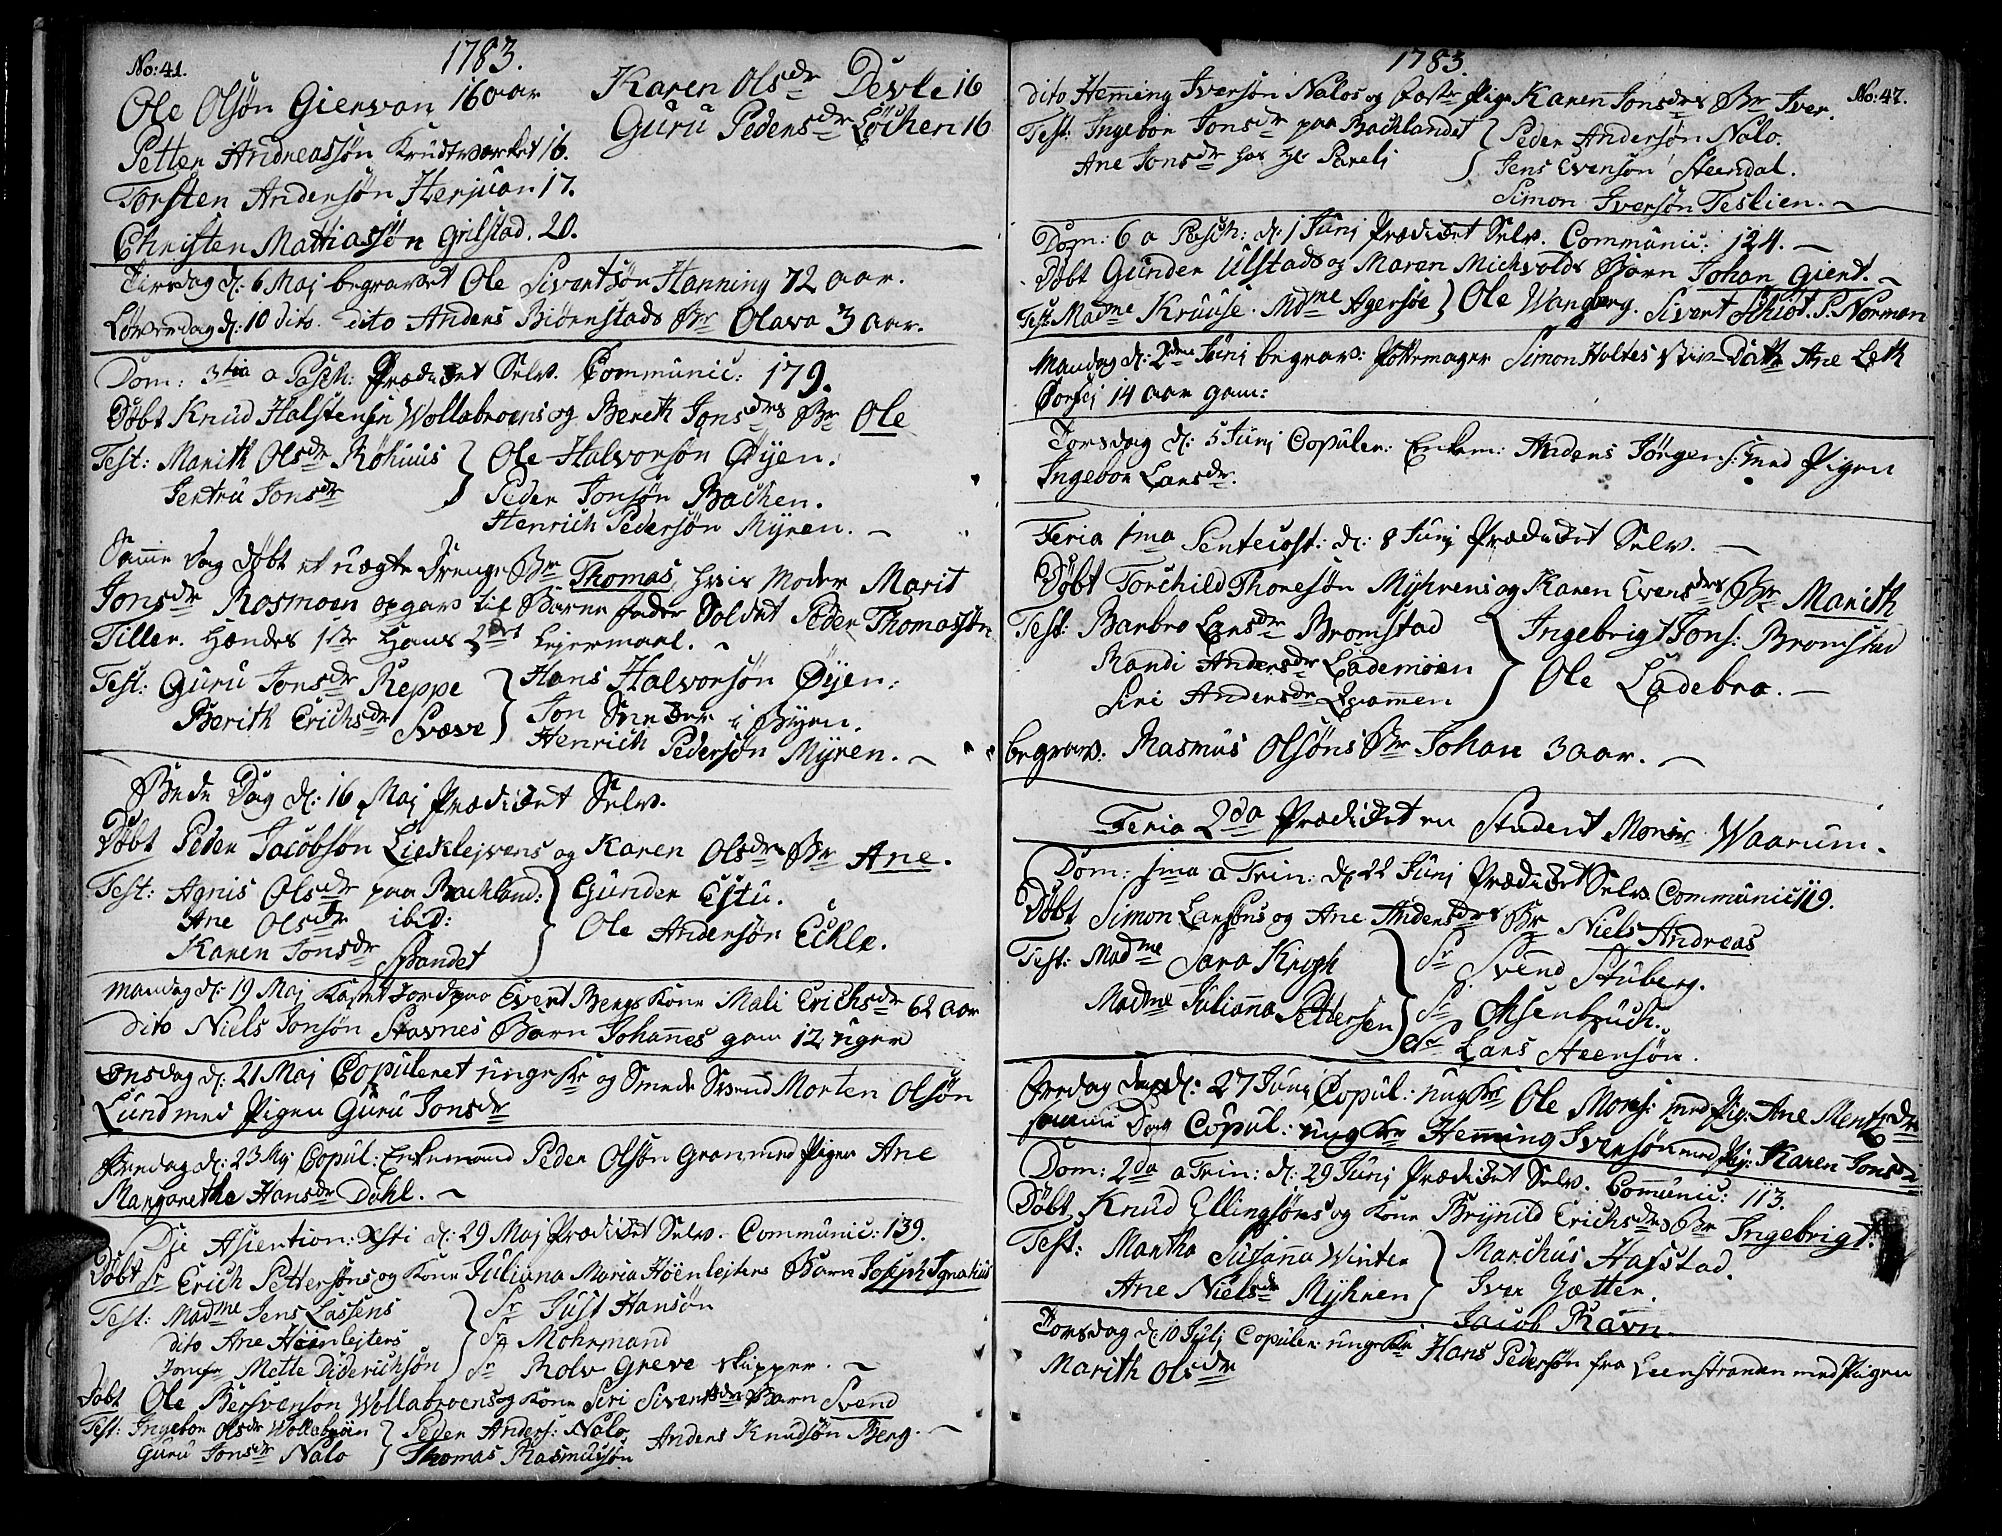 No: 41.
1783.
Ole Olsøn Giervan 16 aar
Petter Andreassøn Krudtværket 16.
Torsten Andersøn Herjuan 17.
Christen Mattiassøn Grilstad. 20.
Karen Olsdr Devle 16
Guru Pedersdr Løchen 16
Tirsdag d: 6 Maj begravet Ole Sivertsøn Hanning 72 aar.
Løverdag d: 10 dito. dito Anders Biørnstads Br Olava 3 aar.
Dom: 3tia a Pasch: Prædicket Selv. Communic: 179.
Døbt Knud Halstensøn Wollabroens og Bereth Jonsdrs Br Ole
Test: Marith Olsdr Røhuus } Ole Halvorsøn Øyen.
Jertru Jonsdr Peder Jonsøn Bachen.
Henrich Pedersøn Myren. ~
Samme Dag døbt et uægte Drenge Br Thomas, hvis Moder Marit
Jonsdr Rosmoen opgav til Barne fader Soldat Peder Thomasøn
Tiller. Hændes 1ste Hans 2det Lejermaal. ~
Test: Guru Jonsdr Reppe } Hans Halvorsøn Øyen:
Berith Erichsdr Svæve Jon i Byen.
Henrich Pedersøn Myren. ~
Bede Dag d: 16 Maj Prædicket Selv.
Døbt Peder Jacobsøn Lieklejvens og Karen Olsdrs Br Ane.
Test: Agnis Olsdr paa Bachland: } Gunder Estu.
Ane Olsdr ibid: Ole Andersøn Eckle.
Karen Jonsdr Bandet
Mandag d: 19 Maj Kastet Jord paa Evert Bergs Kone Mali Erichsdr 62 aar
dito Niels Jonsøn Stavnes Barn Johannes gam 12 uger
Onsdag d: 21 Maj Copuleret ungekr og Smede Svend Morten Olsøn
Lund med Pigen Guru Jonsdr
Fredag d: 23 Mj Copul: Enkemand Peder Olsøn Gran med Pigen Ane
Margaretha Hansdr Dahl. ~
Dje Asiention: Xsti d: 29 Maj Prædicket Selv. Communic: 139.
Døbt Sr Erich Pettersøns og Kone Juliana Maria Høenlejters Barn Joseph Ignatius
Test: Madme Jens Lassens } Sr Just Hansøn
dito Ane Høenlejters Sr Mohrmand
Jomfr Mette Diderichsøn Sr Rolv Greve skipper. ~
Døbt Ole Bersvensøn Wollabroens og Kone Siri Sivertsdrs Barn Svend
Test: Ingebor Olsdr Wollabroen } Peder Anders: Nalo Anders Knudsøn Berg. ~
Guru Jonsdr Nalo Thomas Rasmusøn
1783.
No: 42.
dito Hemming Iversøn Nalos og fæste Pige Karen Jonsdrs Br Iver.
Test: Ingebor Jonsdr paa Bachlandet } Peder Andersøn Nalo.
Ane Jonsdr hos Hr Pareli Jens Evensøn Steendal.
Simon Iversøn Teslien. ~
Dom: 6 a Pasch: d: 1 Junj Prædicket Selv. Communic: 124. ~
Døbt Gunder Ulstads og Maren Michvolds Barn Johan Gient. ~
Test: Madme Kruuse. Mdme Agersøe } Ole Wangberg. Sivert Schiøt. P. Norman
Mandag d: 2den Junj begrav: Pottemager Simon Holtes Dattr Ane Leth
14 aar gam:
Torsdag d: 5 Junj Copuler: Enkem: Anders Jørgens: med Pigen
Ingebor Larsdr.
Feria 1ma Pentecost: d: 8 Junj Prædicket Selv. ~
Døbt Torchild Thoresøn Myhrens og Karen Evensdrs Br Marith
Test: Barbro Larsdr Bromstad } Ingebrigt Jons: Bromstad
Randi Andersdr Lademoen Ole Ladebra. ~
Siri Andersdr Qvammen
begrav: Rasmus Olsøns Br Johan 3 aar. ~
Feria 2da Prædicket en Student Monsr Waarum.
Dom: 1ma a Trin: d: 22 Junj Prædicket Selv. Communic 119.
Døbt Simon Larsøns og Ane Andersdrs Br Niels Andreas
Test: Madme Sara Krogh } Sr Svend Stuberg.
Madme Julianna Pettersen Sr Assenbuch.
Sr Lars Steensøn.
Fredag d: 27 Junj Copul: ungkr Ole Mons: med Pig: Ane Mentzdr
samme Dag Copul: ungkr Hemming Iversøn med Pig: Karen Jonsdr
Dom: 2da a Trin: d: 29 Junj Prædicket Selv. Communic: 113.
Døbt Knud Ellingsøns og Kone Brynild Erichsdrs Br Ingebrigt.
Test: Martha Susanna Winter } Marchus Hafstad.
Ane Nielsdr Myhren Iver Gætter.
Jacob Ravn.
Torsdag d: 10 Julj Copuler: ungekr Hans Pedersøn fra Leenstranden med Pigen
Marith Olsdr